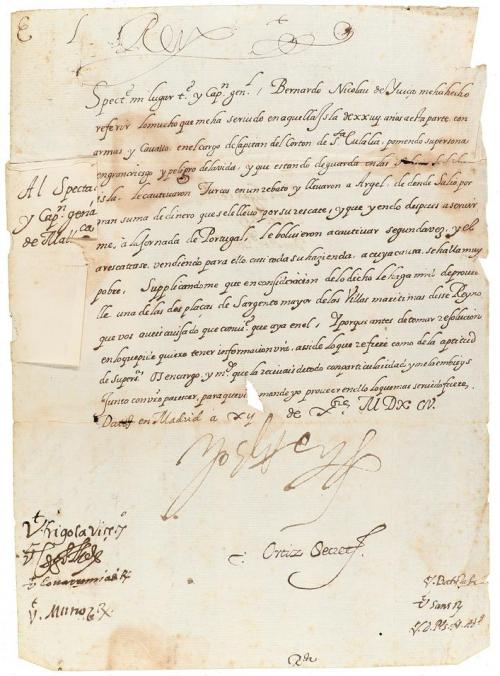 E L Rey
Spect.e mi lugar t.e y Cap.n gen.l / Bernardo Nicolau de me ha hecho
referir lo mucho que me ha servido en aquella Isla de xxxvy años a esta parte, con
armas y Cavallo, en el cargo de Capitan del Corton de S.ta Eulalia, poniendo su persona
en gran riesgo y peligro de la vida, y que estando de guarda en las
Isla, le cautivaron Turcos en un rebato y llevaron a Argel, de donde Salio por
gran suma de dinero que se le llevo por su rescate, y que yendo despues a servir
me, a la Jornada de Portugal, le bolvieron a cautivar segunda vez, y el
a rescatarse, vendiendo para ello casi toda su hazienda, a cuya causa se halla muy
pobre. Supplicandome que en consideracion de lo dicho le haga mrd de provee
lle una de las dos plaças de Sargento mayor de las Villas maritimas desse Reyno
que vos aveis avisado que conviene que aya en el, / Y porque antes de tomar resolucion
en lo que pide quiero tener informacion vra, assi de lo que refiere como de la aptitud
de su pers.a, Os encargo, y m.do que la recivais de todo con particularidad, y me la embieys
Junto con vro parecer, para que visto mande yo proveer en ello lo que mas servido fuere,
Datt en Madrid a xy de x.bre MDXCV.
Al Specta
y Cap.n gen.l
de Mallca
Yo el Rey
Ortiz Secret.
V.t frigola Vicec.
V.t Covarruvias R.
V.t Munoz R.
V.t Sans R